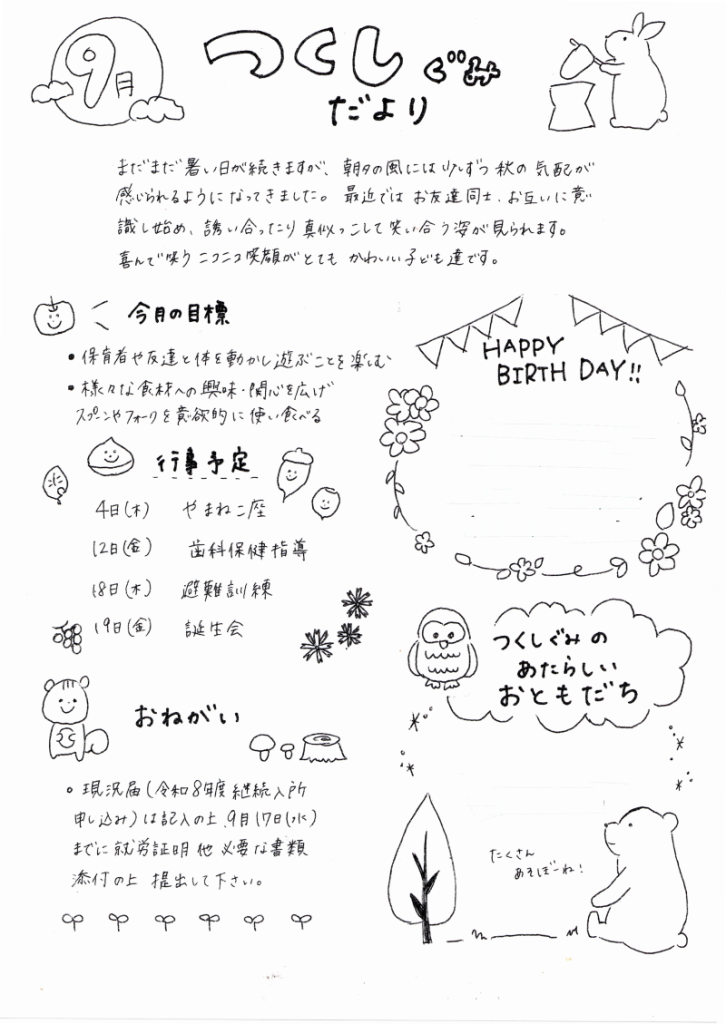 9月
つくしぐみ
だより
まだまだ暑い日が続きますが、朝夕の風には少しずつ秋の気配が
感じられるようになってきました。最近ではお友達同士、お互いに意
識し始め、誘い合ったり真似っこして笑い合う姿が見られます。
喜んで笑うニコニコ笑顔がとてもかわいい子ども達です。
今月の目標
・保育者や友達と体を動かし遊ぶことを楽しむ
・様々な食材への興味・関心を広げ
スプーンやフォークを意欲的に使い食べる
行事予定
4日(木) やまねこ座
12日(金) 歯科保健指導
18日(木) 避難訓練
19日(金) 誕生会
おねがい
○現況届(令和8年度継続入所
申し込み)は記入の上、9月17日(水)
までに就労証明他必要な書類
添付の上提出して下さい。
HAPPY
BIRTHDAY!!
つくしぐみの
あたらしい
おともだち
たくさん
あそぼーね!